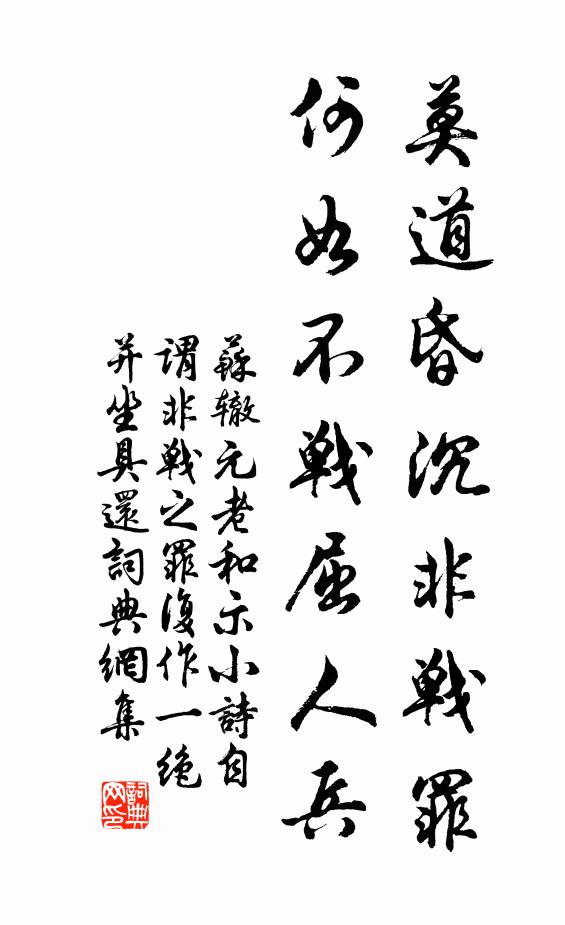 莫道昏沉非戰罪
何如不戰屈人兵
蘇轍元老和示小詩自
謂非戰之罪復作一絶
并坐具還詞典網集
詞典网印